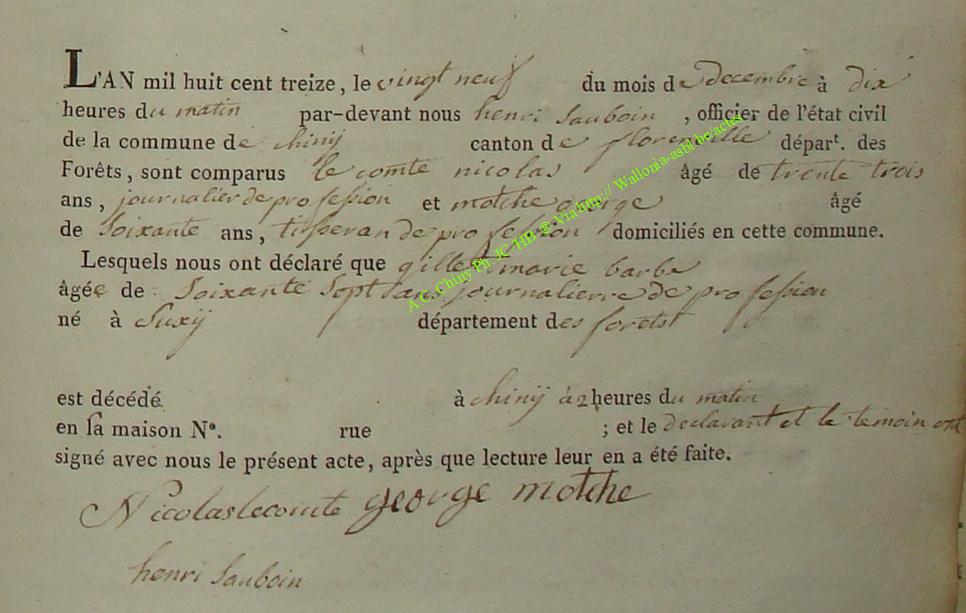 L'AN mil huit cent treize, le vingt neuf du mois de decembre à dix
heures du matin par-devant nous henri Sauboin , officier de l'état civil
de la commune de chinÿ canton de florenville départ. des
Forêts, sont comparus le comte nicolas âgé de trente trois
ans, journalier de profession et motche george âgé
de Soixante ans, tisseran de profession domiciliés en cette commune.
Lesquels nous ont déclaré que gillet marie barbe
âgée de Soixante Sept ans journalierre de profession
né à Suxÿ département des forets
est décédé à chinÿ à 2 heures du matin
en sa maison N°. rue ; et le declarant et le temoin ont
signé avec nous le présent acte, après que lecture leur en a été faite.
Nicolas lecomte george motche
henri Sauboin
A.C. Chiny Ph. JC HB ® Via http// Wallonia-asbl.be/actes